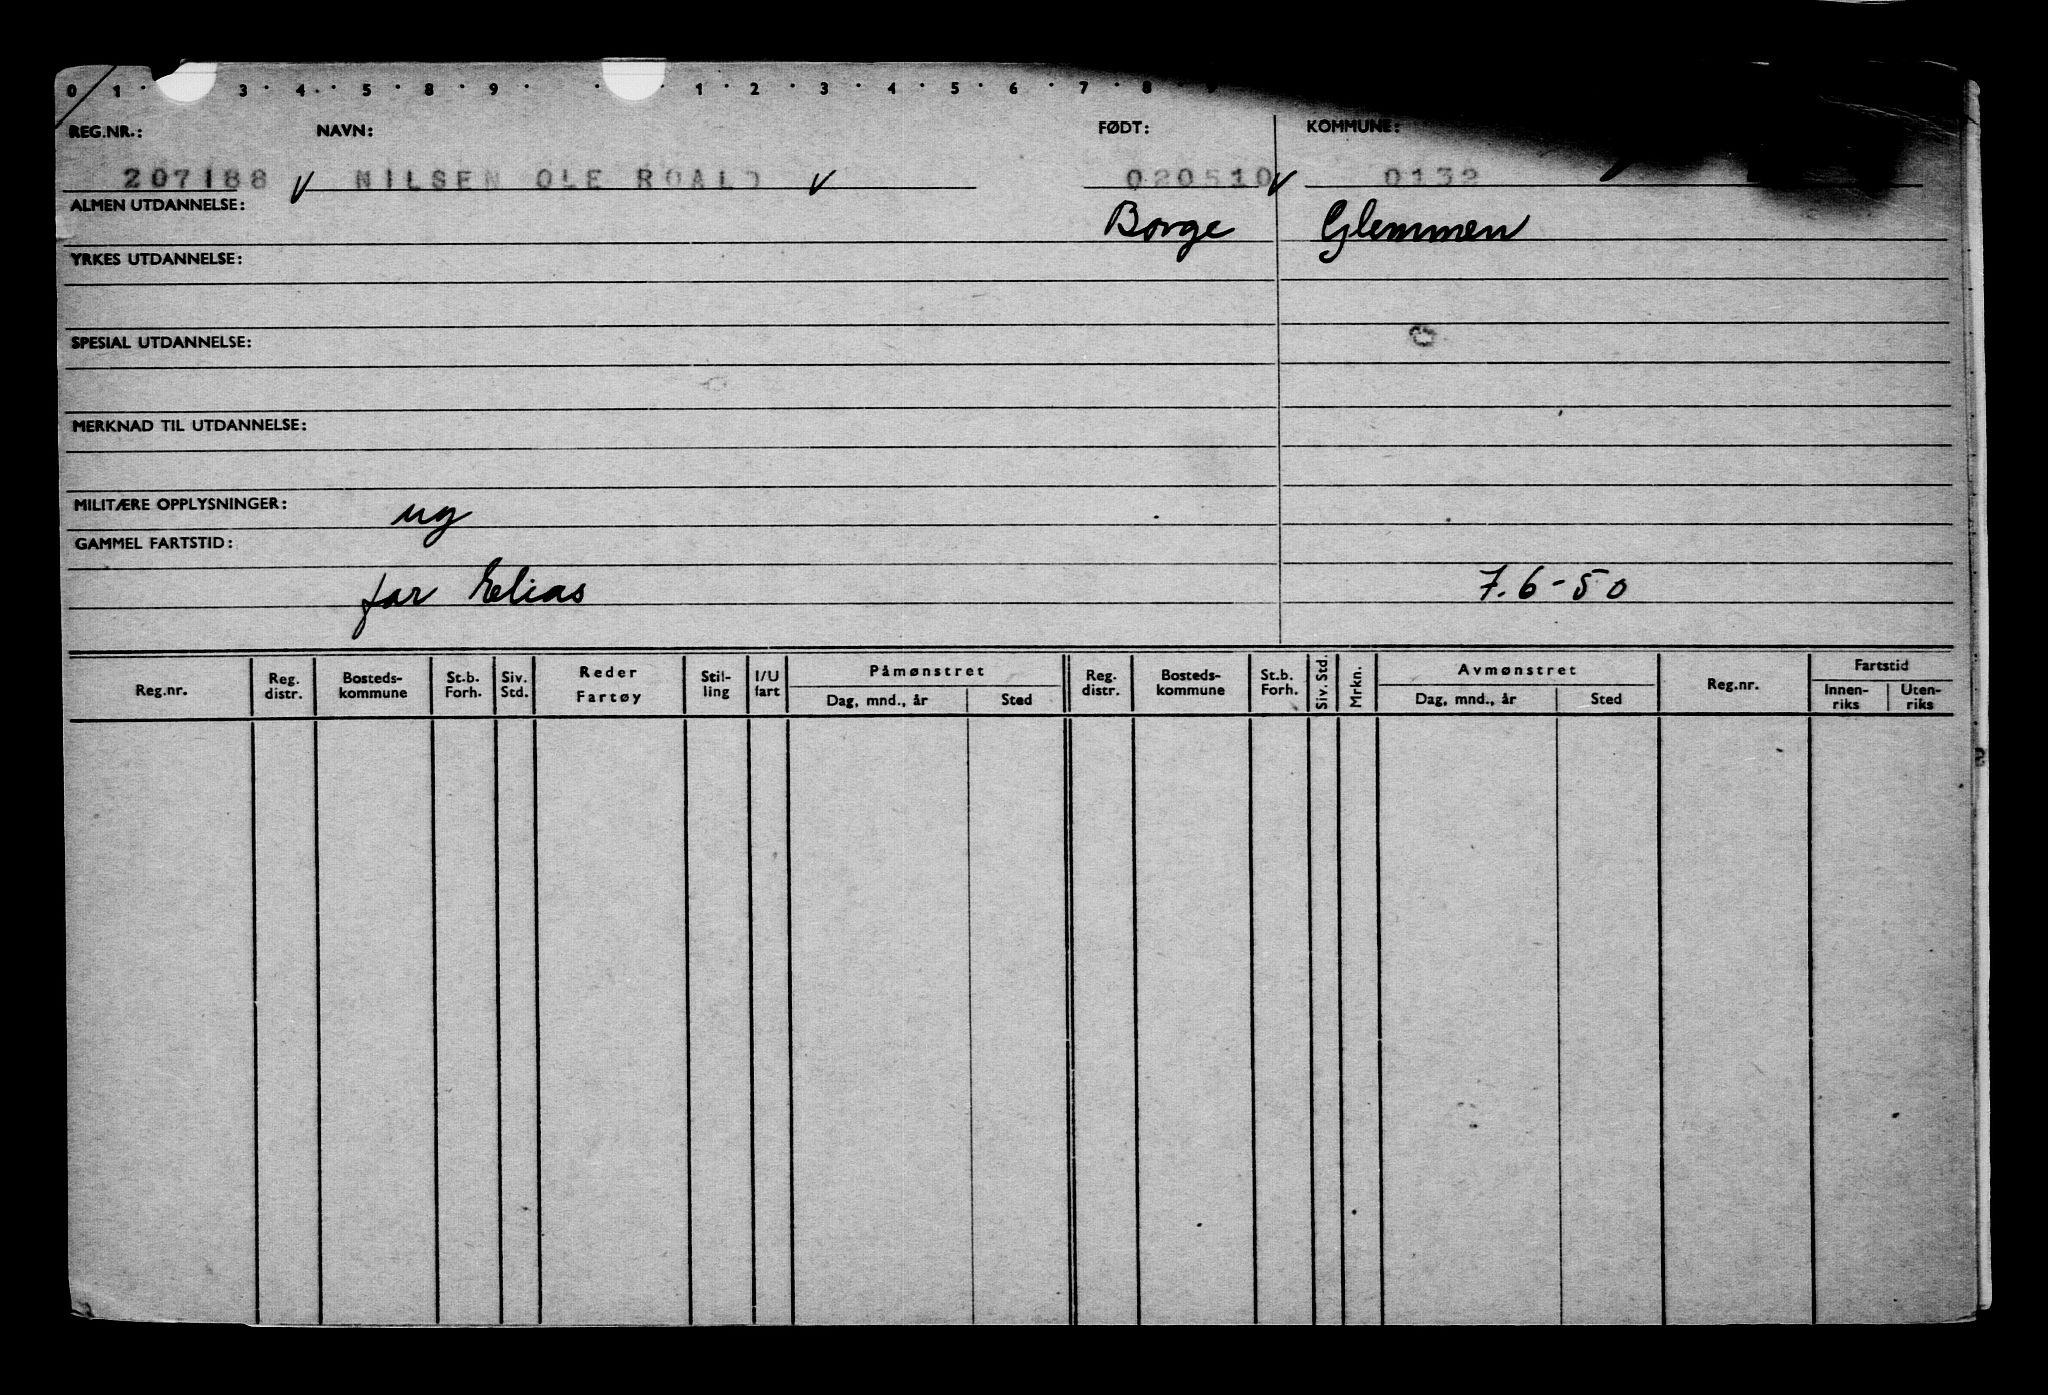 0 1 · 3 · 4 · · 5 · 8 · 9 · · 1 · 2 · 3 · 4 · 5 · 6 · 7 · 8 ·
REG.NR.: NAVN: FØDT: KOMMUNE:
207188 v NILSEN OLE ROALD v 020510 v 0132
ALMEN UTDANNELSE: Borge Glemmen
YRKES UTDANNELSE:
SPESIAL UTDANNELSE:
MERKNAD TIL UTDANNELSE:
MILITÆRE OPPLYSNINGER: ug
GAMMEL FARTSTID:
far Elias 7.6-50
Reg.nr. Reg. distr. Bosteds-kommune St.b. Forh. Siv. Std. Reder Fartøy Stil-ling I/U fart Påmønstret Dag, mnd., år Sted Reg. distr. Bosteds-kommune St.b. Forh. Siv. Std. Mrkn. Avmønstret Dag, mnd., år Sted Reg.nr. Fartstid Innen-riks Uten-riks